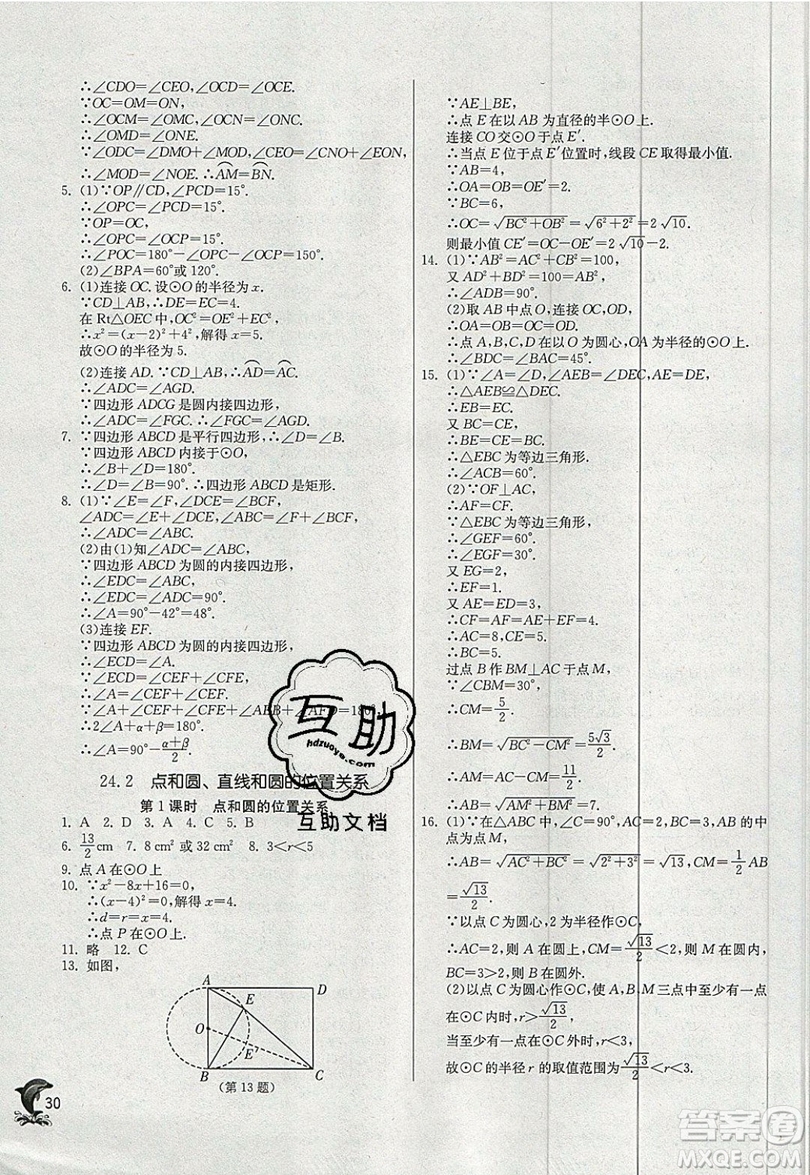 ∴∠CDO=∠CEO,∠OCD=∠OCE.
∵OC=OM=ON,
∴∠OCM=∠OMC,∠OCN=∠ONC.
∴∠OMD=∠ONE.
∵∠ODC=∠DMO+∠MOD,∠CEO=∠CNO+∠EON,
∴∠MOD=∠NOE. ∴AM⌒=BN⌒.
5. (1)∵OP∥CD,∠PCD=15°.
∴∠OPC=∠PCD=15°.
∵OP=OC,
∴∠OPC=∠OCP=15°.
∴∠POC=180°-∠OPC-∠OCP=150°.
(2)∠BPA=60°或120°.
6. (1)连接 OC. 设⊙O 的半径为 x.
∵CD⊥AB,∴DE=EC=4.
在 Rt△OEC 中,OC²=OE²+EC²,
∴x²=(x-2)²+4²,解得 x=5.
故⊙O 的半径为 5.
(2)连接 AD. ∵CD⊥AB,∴AD⌒=AC⌒.
∴∠ADC=∠AGD.
∵四边形 ADCG 是圆内接四边形,
∴∠ADC=∠FGC. ∴∠FGC=∠AGD.
7. ∵四边形 ABCD 是平行四边形,∴∠D=∠B.
∵四边形 ABCD 内接于⊙O,
∴∠B+∠D=180°.
∴∠D=∠B=90°. ∴四边形 ABCD 是矩形.
8. (1)∵∠E=∠F,∠DCE=∠BCF,
∠ADC=∠E+∠DCE,∠ABC=∠F+∠BCF,
∴∠ADC=∠ABC.
(2)由(1)知∠ADC=∠ABC,
∵四边形 ABCD 为圆的内接四边形,
∴∠EDC=∠ABC.
∴∠EDC=∠ADC=90°.
∴∠A=90°-42°=48°.
(3)连接 EF.
∵四边形 ABCD 为圆的内接四边形,
∴∠ECD=∠A.
∵∠ECD=∠CEF+∠CFE,
∴∠A=∠CEF+∠CFE.
∵∠A+∠CEF+∠CFE+∠AEB+∠AFD=180°,
∴2∠A+α+β=180°.
∴∠A=90°-(α+β)/2.
24.2 点和圆、直线和圆的位置关系
第 1 课时 点和圆的位置关系
1. A 2. D 3. A 4. C 5. B
6. 13/2 cm 7. 8 cm² 或 32 cm² 8. 3<r<5
9. 点 A 在⊙O 上
10. ∵x²-8x+16=0,
∴(x-4)²=0,解得 x=4.
∴d=r=4.
∴点 P 在⊙O 上.
11. 略 12. C
13. 如图,
A
D
E
O
E′
B
C
(第 13 题)
∵AE⊥BE,
∴点 E 在以 AB 为直径的半⊙O 上.
连接 CO 交⊙O 于点 E′.
∴当点 E 位于点 E′位置时,线段 CE 取得最小值.
∵AB=4,
∴OA=OB=OE′=2.
∵BC=6,
∴OC=√(BC²+OB²)=√(6²+2²)=2√10.
则最小值 CE′=OC-OE′=2√10-2.
14. (1)∵AB²=AC²+CB²=100,
又 AD²+BD²=100=AB²,
∴∠ADB=90°.
(2)取 AB 中点 O,连接 OC,OD,
∴OA=OB=OD=OC.
∴点 A,B,C,D 在以 O 为圆心,OA 为半径的圆上.
∴∠BDC=∠BAC=45°.
15. (1)∵∠A=∠D,∠AEB=∠DEC,AE=DE,
∴△AEB≌△DEC.
∴EB=EC.
又 BC=CE,
∴BE=CE=BC.
∴△EBC 为等边三角形.
∴∠ACB=60°.
(2)∵OF⊥AC,
∴AF=CF.
∵△EBC 为等边三角形,
∴∠GEF=60°.
∴∠EGF=30°.
又 EG=2,
∴EF=1.
又 AE=ED=3,
∴CF=AF=AE+EF=4.
∴AC=8,EC=5.
∴BC=5.
过点 B 作 BM⊥AC 于点 M,
∵∠CBM=30°,
∴CM=5/2.
∴BM=√(BC²-CM²)=5√3/2.
∴AM=AC-CM=11/2.
∴AB=√(AM²+BM²)=7.
16. (1)∵在△ABC 中,∠C=90°,AB 的中
点为点 M,
∴AB=√(AC²+BC²)=√(2²+3²)=√13,CM=1/2 AB
=√13/2.
∵以点 C 为圆心,2 为半径作⊙C,
∴AC=2,则 A 在圆上,CM=√13/2<2,则 M 在圆内,
BC=3>2,则 B 在圆外.
(2)以点 C 为圆心作⊙C,使 A,B,M 三点中至少有一点
在⊙C 内时,r>√13/2,
当至少有一点在⊙C 外时,r<3,
故⊙C 的半径 r 的取值范围为√13/2<r<3.
互助
hdzuoye.com
互助文档
30
答案卷
MXQE.COM